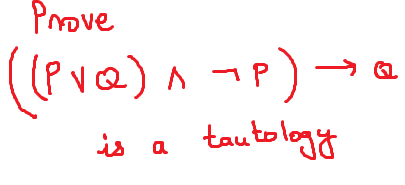 Prove
((P ∨ Q) ∧ ¬ P) → Q
is a tautology